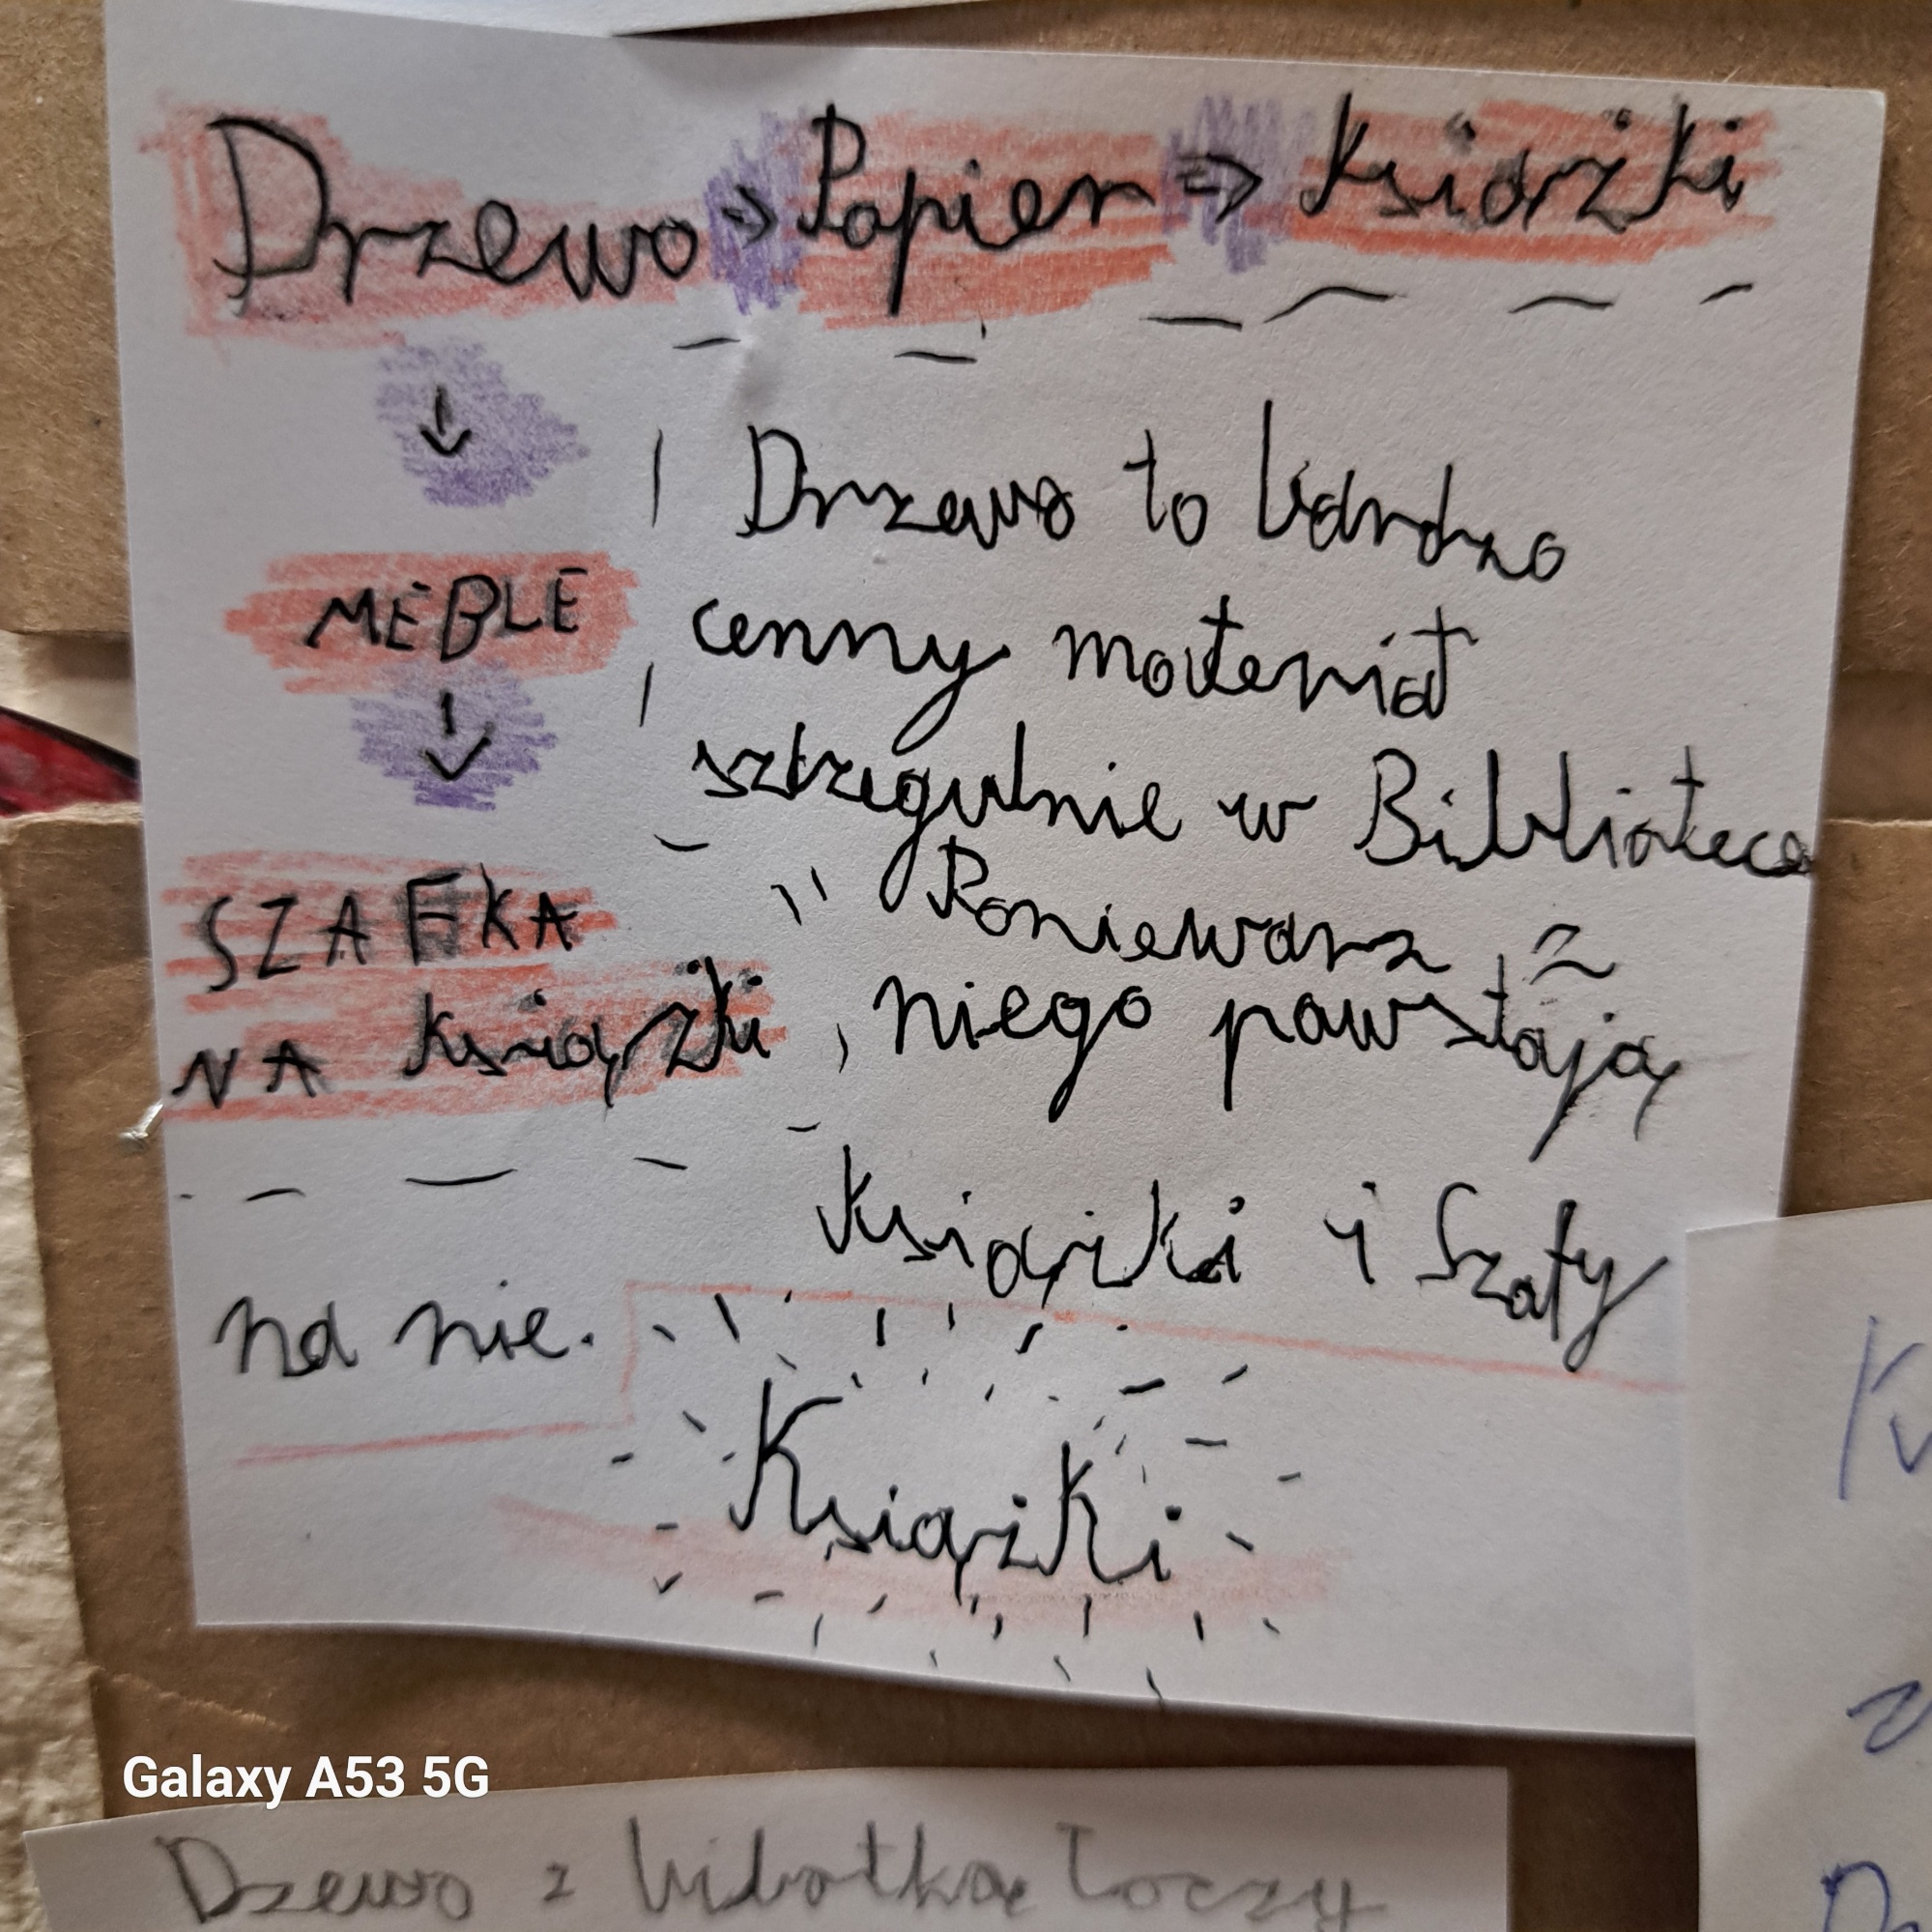 Drzewo => Papier => Książki
↓
MEBLE
↓
SZAFKA
NA Książki
Drzewo to bardzo
cenny materiał
sztzegulnie w Bibliotece
Poniewarz z
niego powstają
Książki i Szafy
na nie.
Książki
Galaxy A53 5G
Dzewo z biblotką łoczy